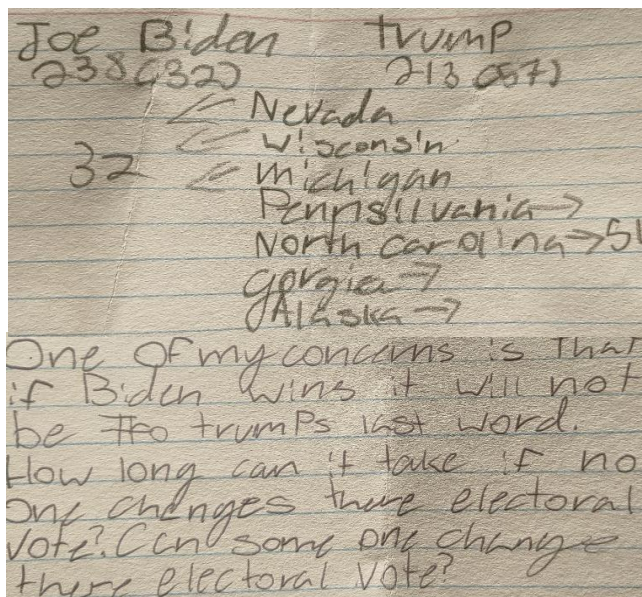 Joe Biden Trump
238(32) 213 (57)
Nevada
Wisconsin
32 Michigan
Pennsilvania →
North Carolina →
Gorgia →
Alaska →
One of my concerns is That
if Biden wins it will not
be trumps last word.
How long can it take if no
one changes there electoral
vote? Can some one change
there electoral vote?